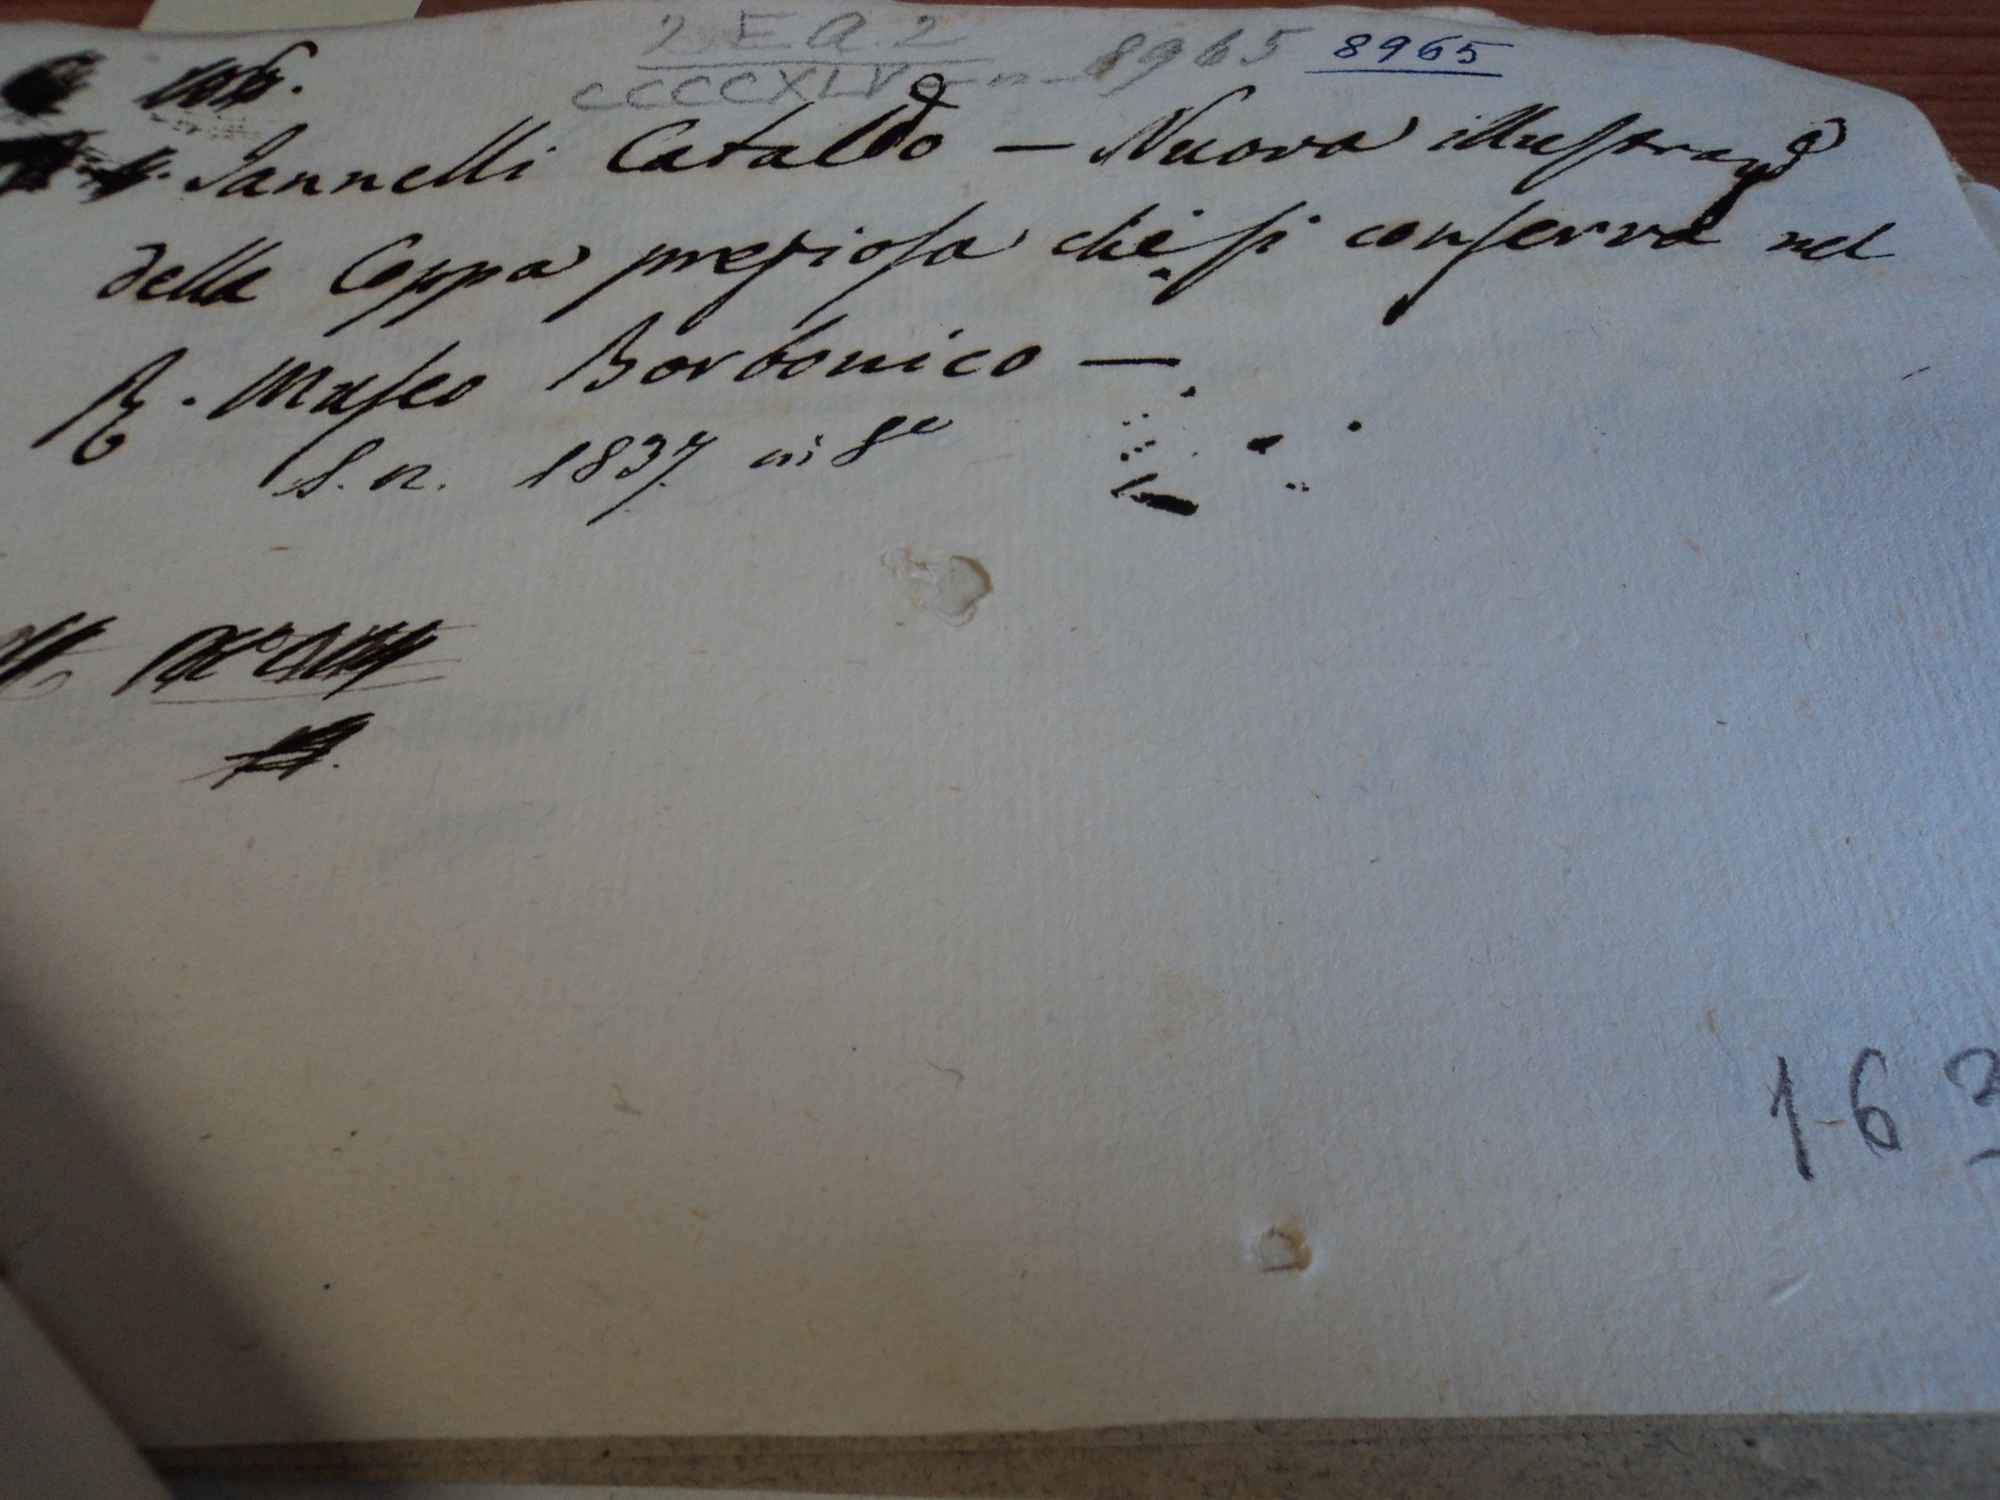 2 E A. 2
CCCCXLV n 8965 8965
Jannelli Cataldo — Nuova illustraz.e
della Coppa preziosa che si conserva nel
R. Museo Borbonico —
S. n. 1837. in 8°
1-6